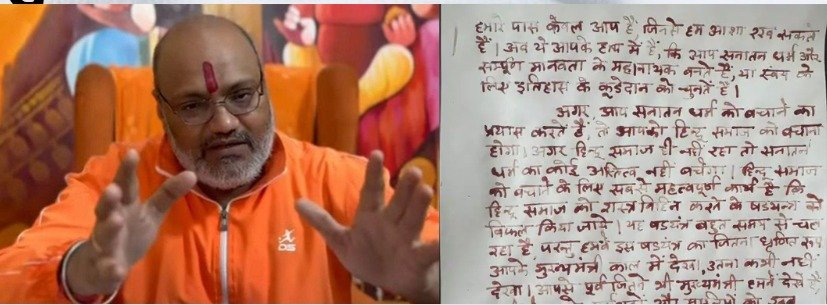 हमारे पास केवल आप हैं, जिनसे हम आशा रख सकते
हैं। अब ये आपके हाथ में है, कि आप सनातन धर्म और
सम्पूर्ण मानवता के महानायक बनते हैं, या स्वयं के
लिए इतिहास के कूड़ेदान को चुनते हैं।
अगर आप सनातन धर्म को बचाने का
प्रयास करते हैं, तो आपको हिन्दू समाज को बचाना
होगा। अगर हिन्दू समाज ही नहीं रहा तो सनातन
धर्म का कोई अस्तित्व नहीं बचेगा। हिन्दू समाज
को बचाने के लिए सबसे महत्वपूर्ण कार्य है कि
हिन्दू समाज को शस्त्र विहित करने के षडयन्त्र को
विफल किया जाये। यह षडयंत्र बहुत समय से चल
रहा है परन्तु हमने इस षडयंत्र का जितना घृणित रूप
आपके मुख्यमंत्री काल में देखा, उतना कभी नहीं
देखा। आपसे पूर्व जितने भी मुख्यमंत्री हमने देखे हैं
DIS